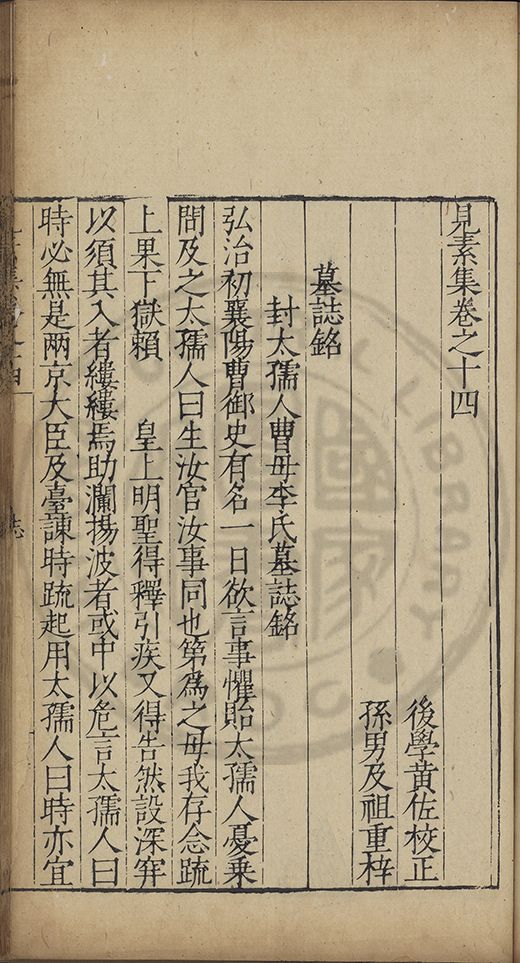 見素集卷之十四
後學黃佐校正
孫男及祖重梓
墓誌銘
封太孺人曹母李氏墓誌銘
弘治初襄陽曹御史有名一日欲言事懼貽太孺人憂乗
間及之太孺人曰生汝官汝事同也第為之毋我存念疏
上果下獄賴　皇上明聖得釋引疾又得告然設深穽
以須其入者縷縷焉助瀾揚波者或中以危言太孺人曰
時必無是兩京大臣及臺諫時疏起用太孺人曰時亦宜
志